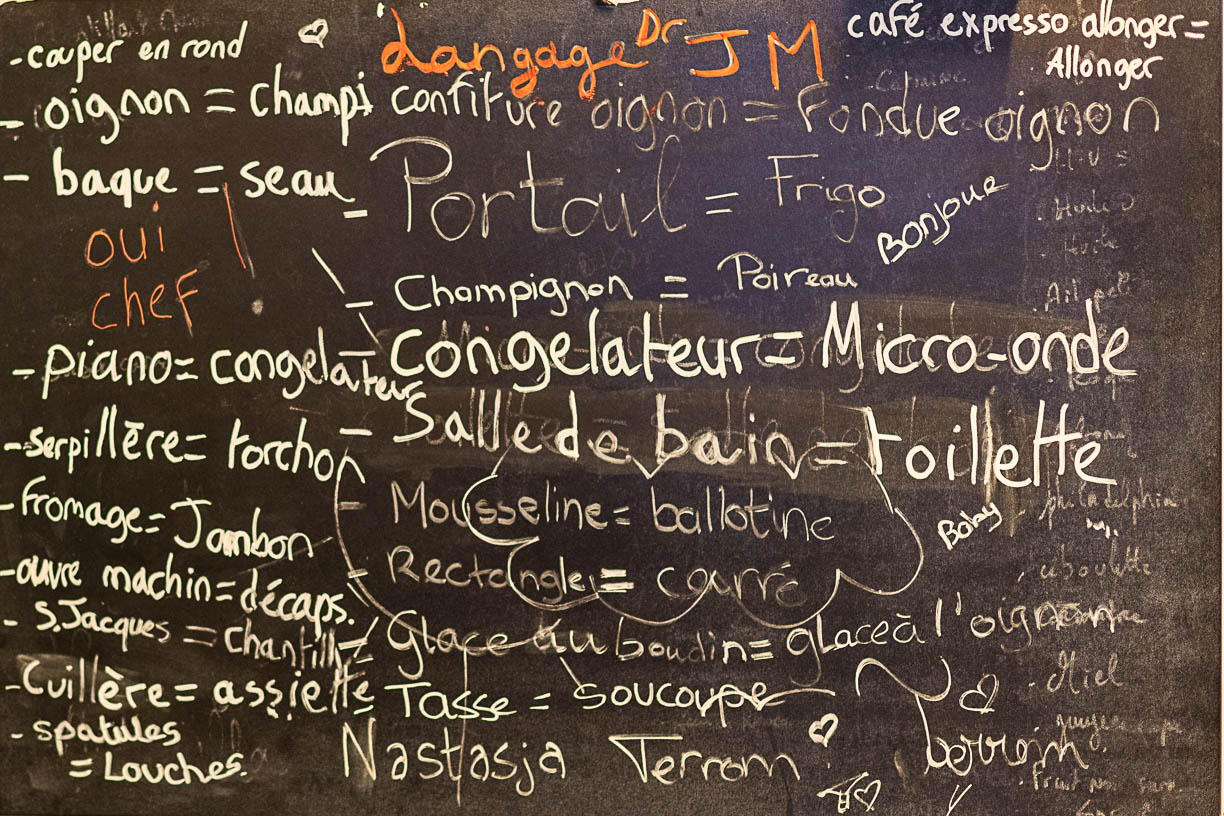 Langage Dr JM
café expresso allonger =
Allonger
- couper en rond
- oignon = champi
- baque = seau
oui
chef
- piano = congelateur
- serpillère = torchon
- fromage = Jambon
- ouvre machin = décaps.
- S.Jacques = chantilly
- Cuillère = assiette
- spatules
= Louches.
confiture oignon = Fondue oignon
- Portail = Frigo
Bonjour
- Champignon = Poireau
- congelateur = Micro-onde
- Salle de bain = toillette
- Mousseline = ballotine
- Rectangle = carré
- Glace au boudin = glace à l'oignon
- Tasse = soucoupe
Nastasja Terrom
Huile
Huile
Ail
philadelphia
Miel
Fruit